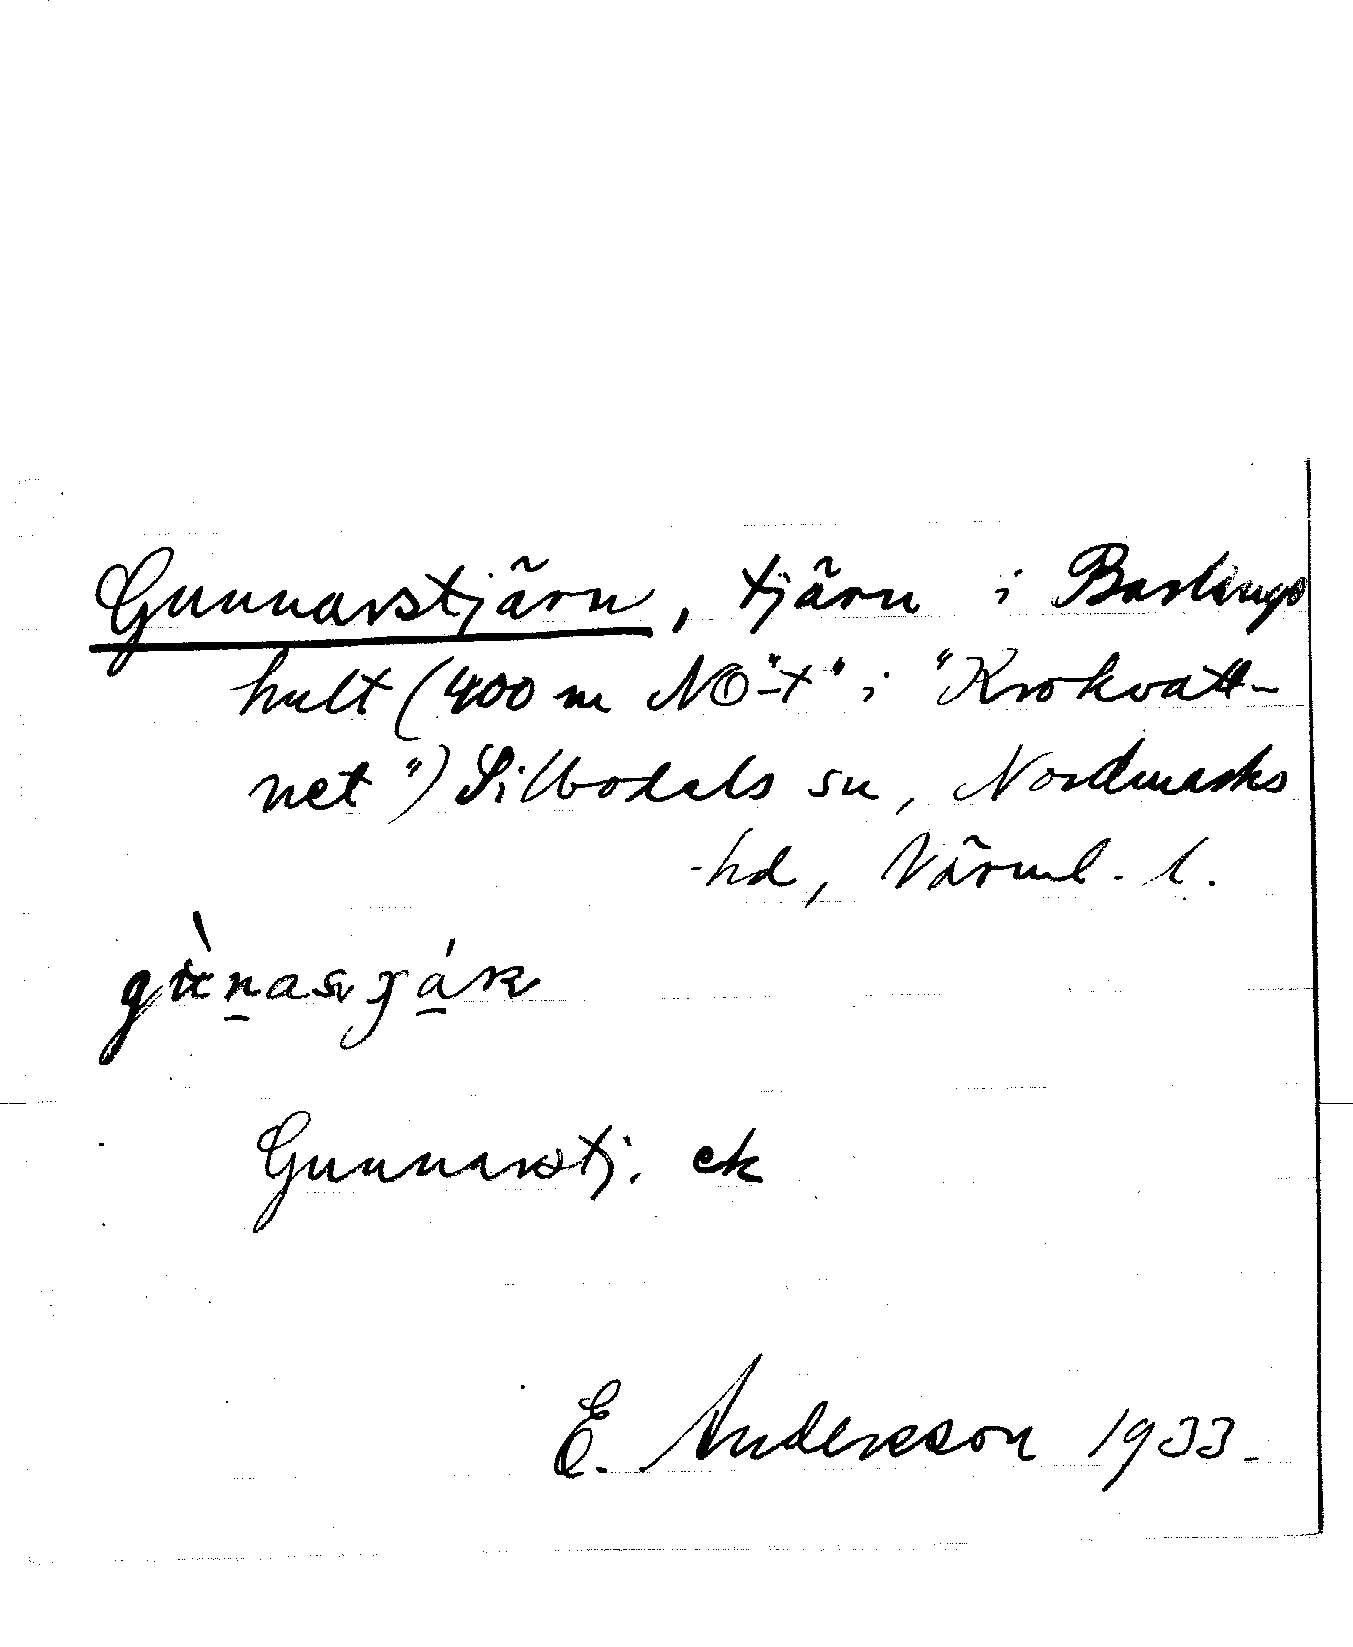 Gunnarstjärn, tjärn i Barlings
hult (400 m NO "-t" i "Krokvatt-
net") Silbodals sn, Nordmarks
-hd, Värml. l.
Gunnarstj. ek
E. Andersson 1933.